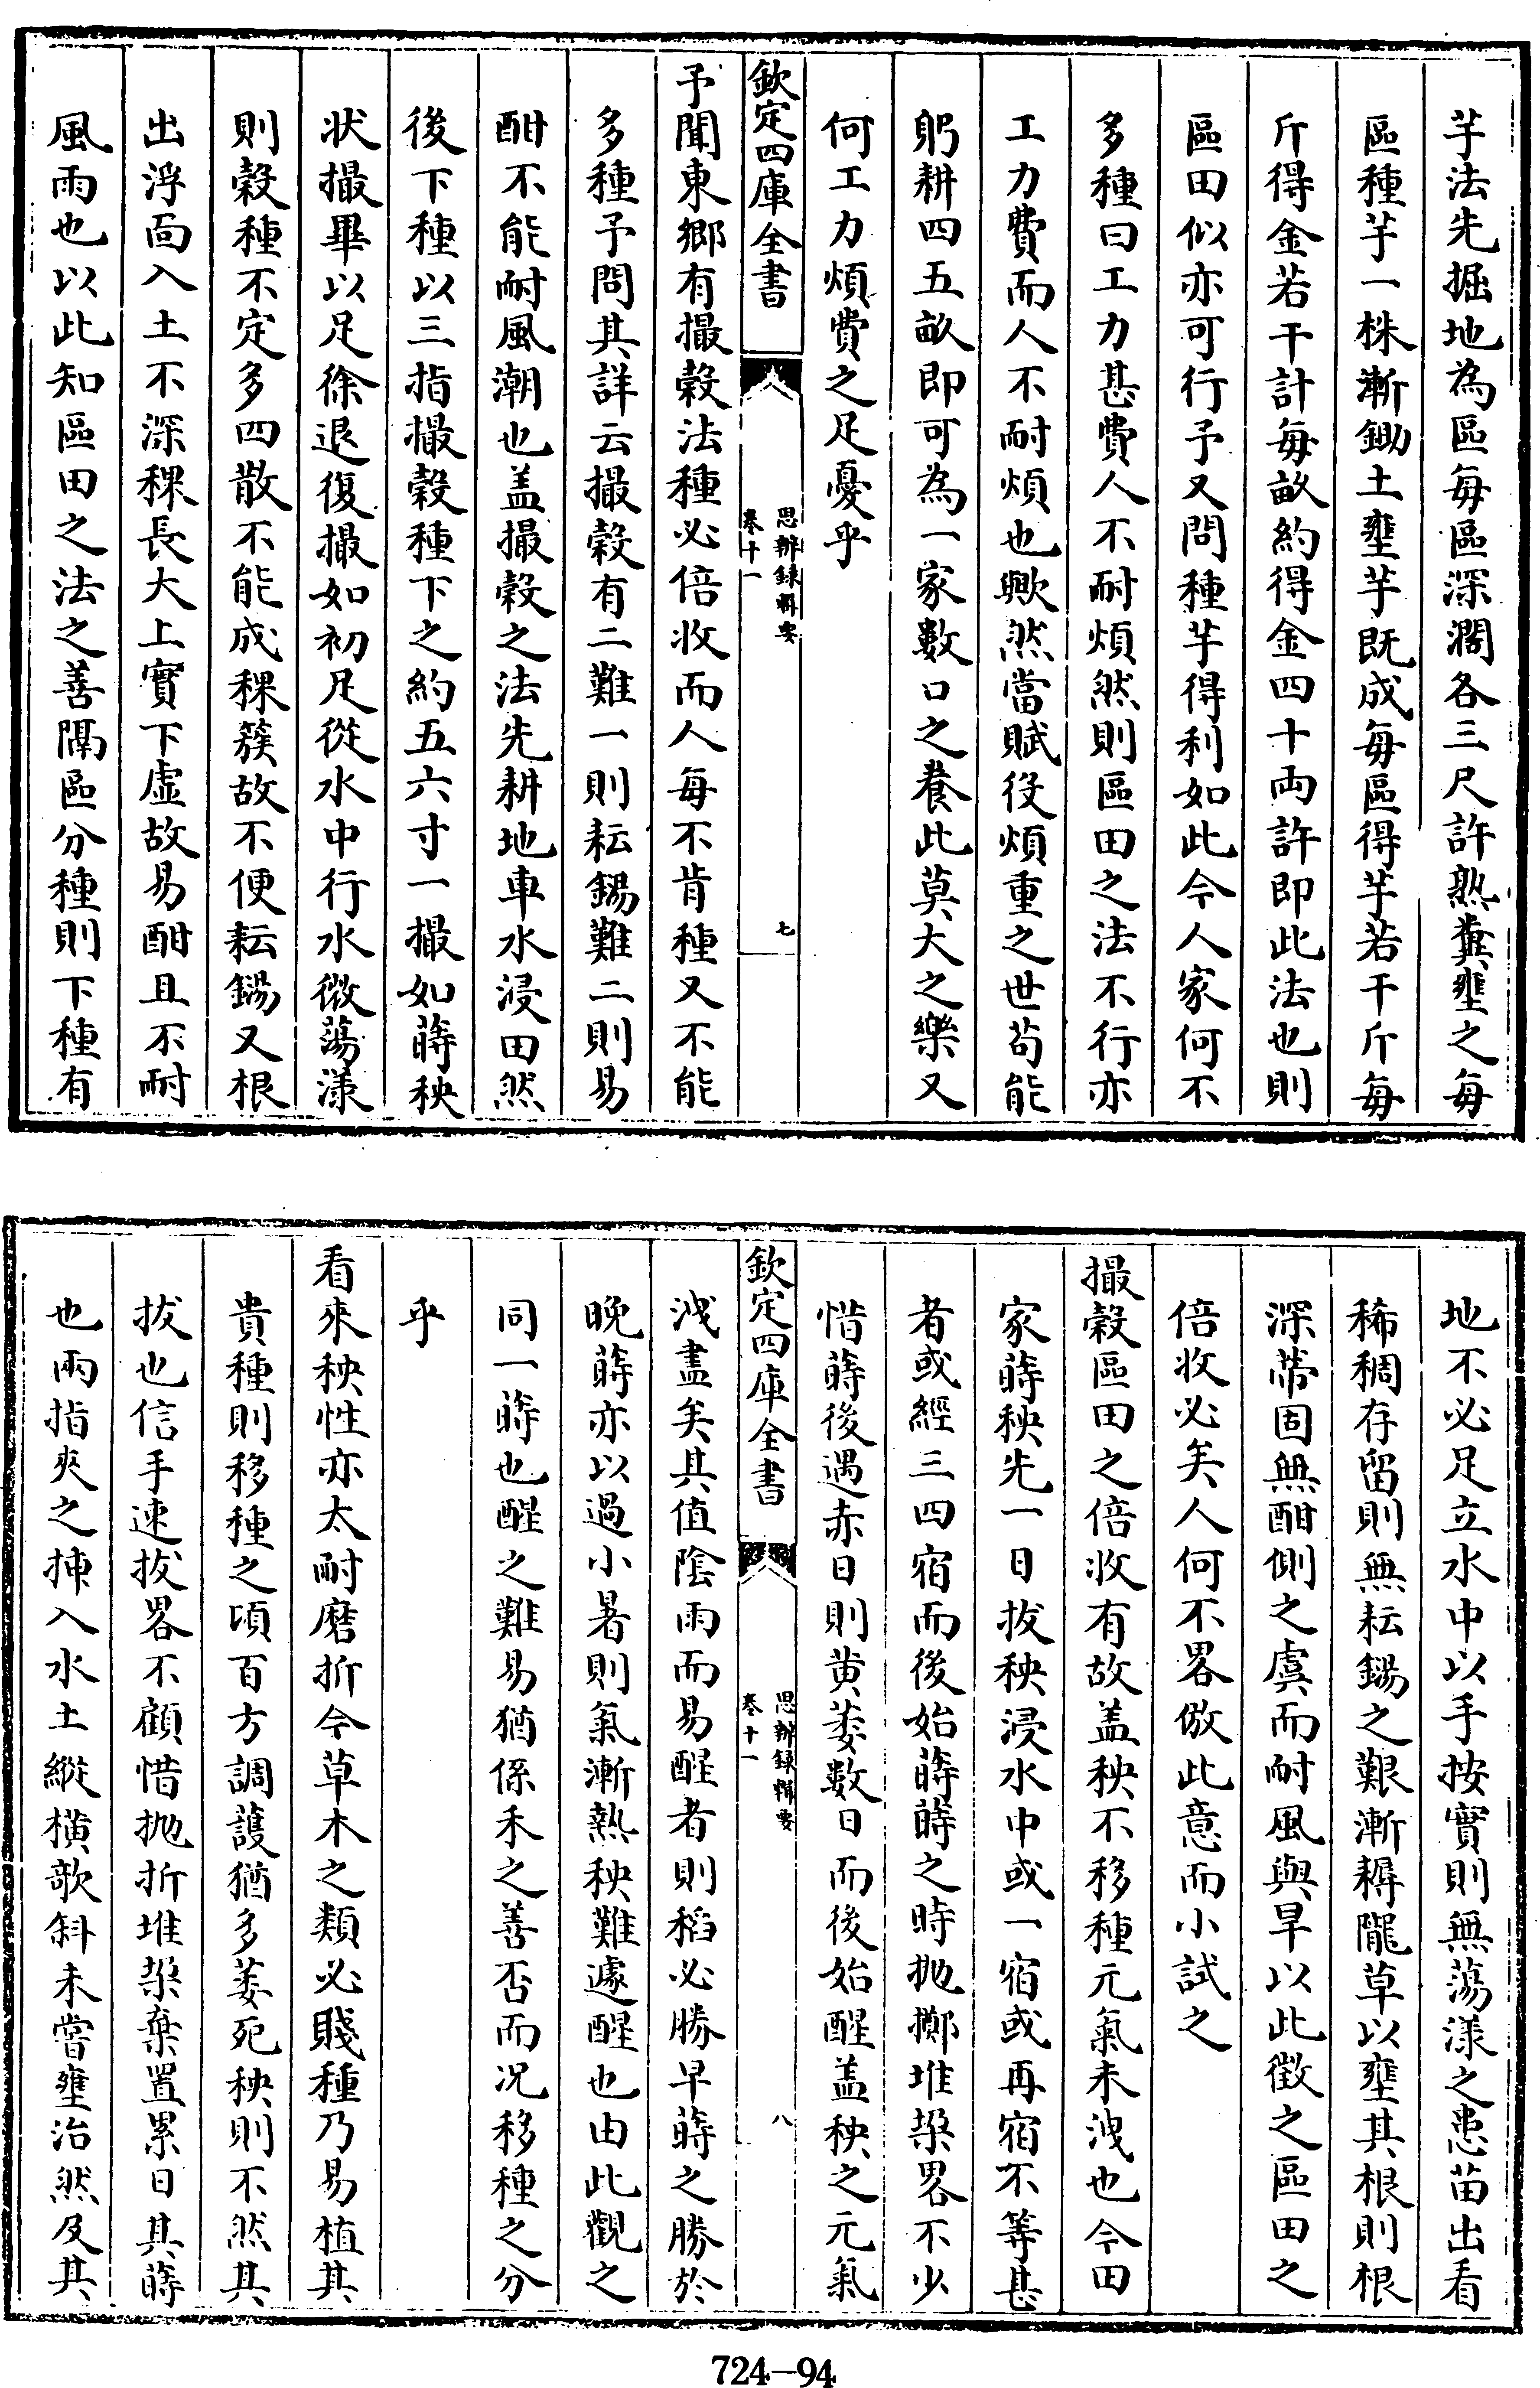 芋法先掘地為區每區深濶各三尺許熟糞壅之每
區種芋一株漸鋤土壅芋既成每區得芋若干斤每
斤得金若干計每畝約得金四十両許即此法也則
區田似亦可行予又問種芋得利如此今人家何不
多種曰工力甚費人不耐煩然則區田之法不行亦
工力費而人不耐煩也歟然當賦役煩重之世苟能
躬耕四五畝即可為一家數口之養此莫大之樂又
何工力煩費之足憂乎
欽定四庫全書
思辨録輯要
卷十一
七
予聞東鄉有撮穀法種必倍收而人每不肯種又不能
多種予問其詳云撮穀有二難一則耘鍚難二則易
酣不能耐風潮也盖撮穀之法先耕地車水浸田然
後下種以三指撮穀種下之約五六寸一撮如蒔秧
狀撮畢以足徐退復撮如初足從水中行水微蕩漾
則穀種不定多四散不能成稞簇故不便耘鍚又根
出浮靣入土不深稞長大上實下虛故易酣且不耐
風雨也以此知區田之法之善隔區分種則下種有
地不必足立水中以手按實則無蕩漾之患苗出看
稀稠存留則無耘鍚之艱漸耨隴草以壅其根則根
深蒂固無酣側之虞而耐風與旱以此徴之區田之
倍收必矣人何不畧倣此意而小試之
撮穀區田之倍收有故盖秧不移種元氣未洩也今田
家蒔秧先一日拔秧浸水中或一宿或再宿不等甚
者或經三四宿而後始蒔蒔之時抛擲堆垜畧不少
惜蒔後遇赤日則黄萎数日而後始醒盖秧之元氣
欽定四庫全書
思辨録輯要
卷十一
八
洩盡矣其值陰雨而易醒者則稻必勝早蒔之勝於
晚蒔亦以過小暑則氣漸熱秧難遽醒也由此觀之
同一蒔也醒之難易猶係禾之善否而况移種之分
乎
看來秧性亦太耐磨折今草木之類必賤種乃易植其
貴種則移種之頃百方調護猶多萎死秧則不然其
拔也信手速拔畧不顧惜抛折堆垜棄置累日其蒔
也兩指夾之揀入水土縱橫欹斜未嘗壅治然及其
724-94